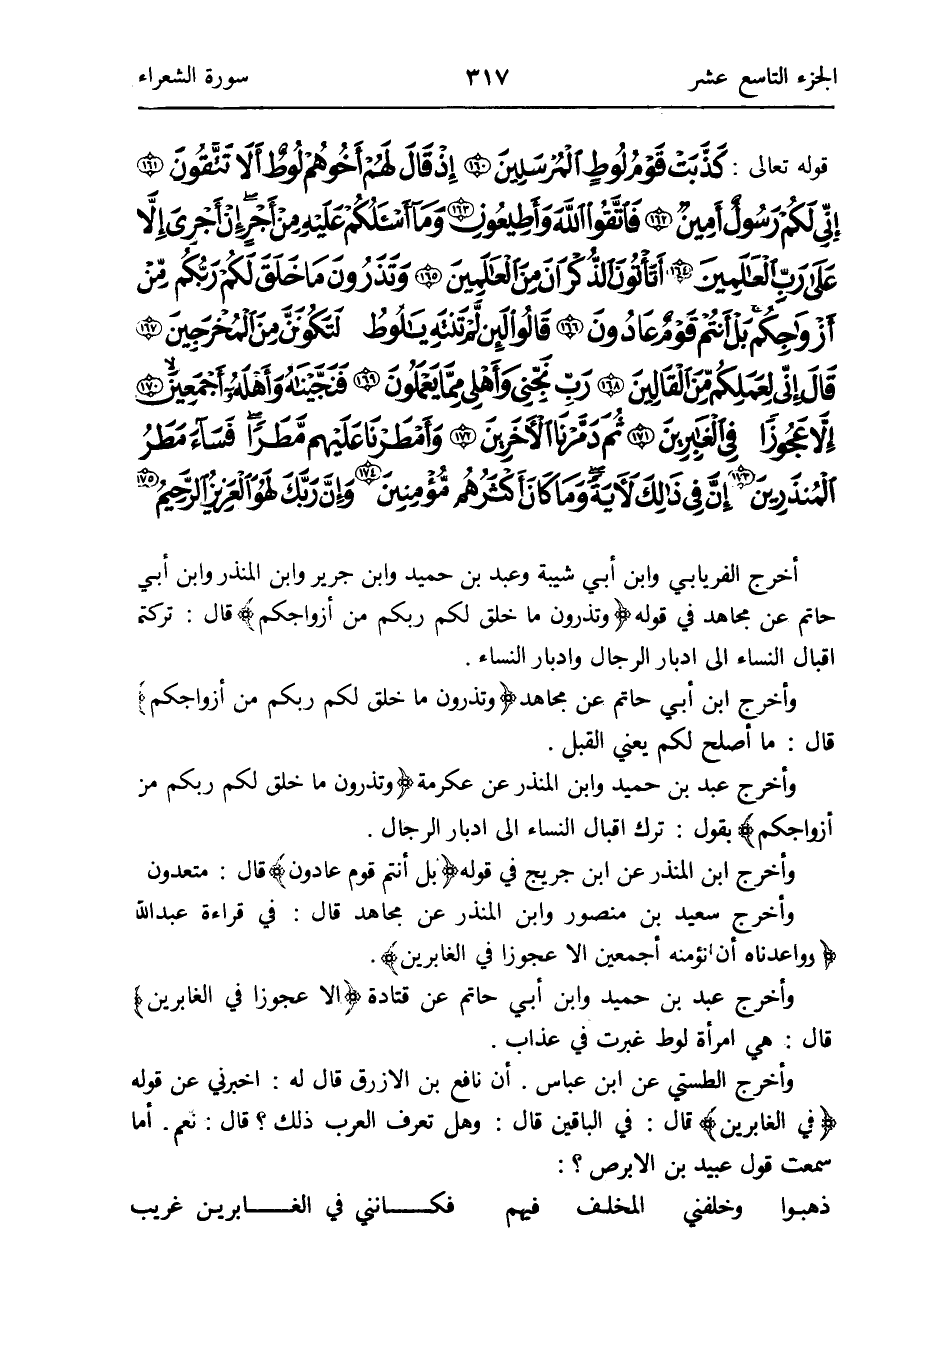 الجزء التاسع عشر ٣١٧ سورة الشعراء
قوله تعالى : كَذَّبَتْ قَوْمُ لُوطٍ الْمُرْسَلِينَ ١٦٠ إِذْ قَالَ لَهُمْ أَخُوهُمْ لُوطٌ أَلَا تَتَّقُونَ ١٦١
إِنِّي لَكُمْ رَسُولٌ أَمِينٌ ١٦٢ فَاتَّقُوا اللَّهَ وَأَطِيعُونِ ١٦٣ وَمَا أَسْـَٔلُكُمْ عَلَيْهِ مِنْ أَجْرٍ إِنْ أَجْرِيَ إِلَّا
عَلَىٰ رَبِّ الْعَالَمِينَ ١٦٤ أَتَأْتُونَ الذُّكْرَانَ مِنَ الْعَالَمِينَ ١٦٥ وَتَذَرُونَ مَا خَلَقَ لَكُمْ رَبُّكُم مِّنْ
أَزْوَاجِكُم بَلْ أَنتُمْ قَوْمٌ عَادُونَ ١٦٦ قَالُوا لَئِن لَّمْ تَنتَهِ يَـٰلُوطُ لَتَكُونَنَّ مِنَ الْمُخْرَجِينَ ١٦٧
قَالَ إِنِّي لِعَمَلِكُم مِّنَ الْقَالِينَ ١٦٨ رَبِّ نَجِّنِي وَأَهْلِي مِمَّا يَعْمَلُونَ ١٦٩ فَنَجَّيْنَـٰهُ وَأَهْلَهُ أَجْمَعِينَ ١٧٠
إِلَّا عَجُوزًا فِي الْغَابِرِينَ ١٧١ ثُمَّ دَمَّرْنَا الْآخَرِينَ ١٧٢ وَأَمْطَرْنَا عَلَيْهِم مَّطَرًا فَسَاءَ مَطَرُ
الْمُنذَرِينَ ١٧٣ إِنَّ فِي ذَٰلِكَ لَآيَةً وَمَا كَانَ أَكْثَرُهُم مُّؤْمِنِينَ ١٧٤ وَإِنَّ رَبَّكَ لَهُوَ الْعَزِيزُ الرَّحِيمُ ١٧٥
أخرج الفريابي وابن أبي شيبة وعبد بن حميد وابن جرير وابن المنذر وابن أبي
حاتم عن مجاهد في قوله ﴿وتذرون ما خلق لكم ربكم من أزواجكم﴾ قال : تركتم
اقبال النساء الى ادبار الرجال وادبار النساء .
وأخرج ابن أبي حاتم عن مجاهد ﴿وتذرون ما خلق لكم ربكم من أزواجكم﴾
قال : ما أصلح لكم يعني القبل .
وأخرج عبد بن حميد وابن المنذر عن عكرمة ﴿وتذرون ما خلق لكم ربكم من
أزواجكم﴾ يقول : ترك اقبال النساء الى ادبار الرجال .
وأخرج ابن المنذر عن ابن جريج في قوله ﴿بل أنتم قوم عادون﴾ قال : متعدون
وأخرج سعيد بن منصور وابن المنذر عن مجاهد قال : في قراءة عبدالله
﴿وواعدناه أن نؤمنه أجمعين الا عجوزا في الغابرين﴾ .
وأخرج عبد بن حميد وابن أبي حاتم عن قتادة ﴿الا عجوزا في الغابرين﴾
قال : هي امرأة لوط غبرت في عذاب .
وأخرج الطستي عن ابن عباس . أن نافع بن الازرق قال له : اخبرني عن قوله
﴿في الغابرين﴾ قال : في الباقين قال : وهل تعرف العرب ذلك ؟ قال : نعم . أما
سمعت قول عبيد بن الابرص ؟ :
ذهبوا وخلفني المخلف فيهم فكـــــأنني في الغـــــابرين غريب